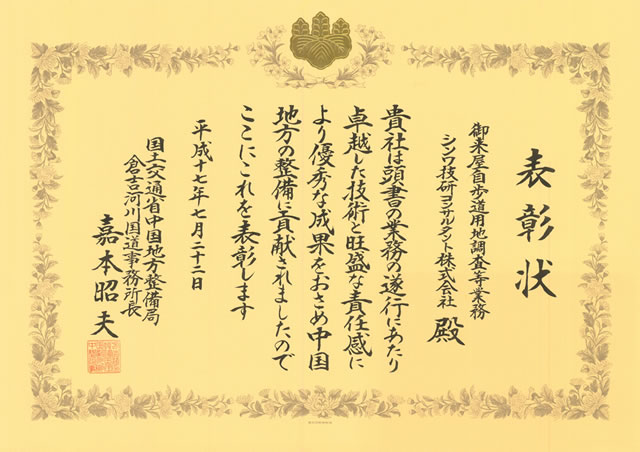 表彰状
御来屋自歩道用地調査等業務
シンワ技研コンサルタント株式会社 殿
貴社は頭書の業務の遂行にあたり
卓越した技術と旺盛な責任感に
より優秀な成果をおさめ中国
地方の整備に貢献されましたので
ここにこれを表彰します
平成十七年七月二十二日
国土交通省中国地方整備局
倉吉河川国道事務所長
嘉本昭夫